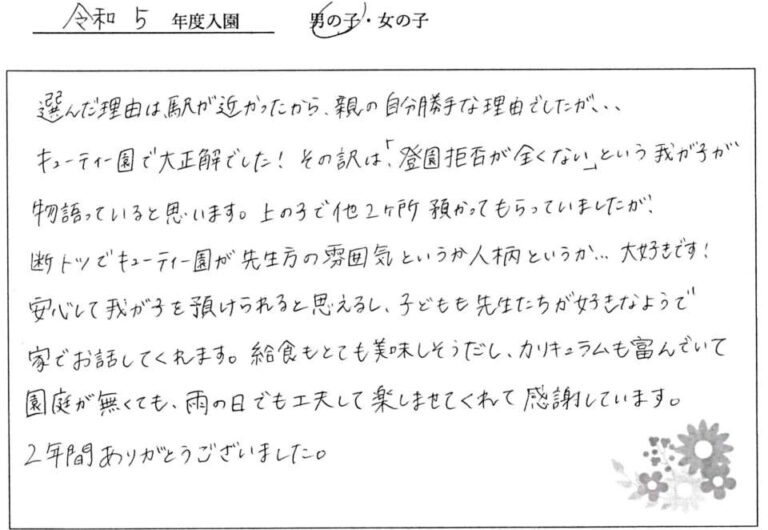 令和 5 年度入園 男の子・女の子
選んだ理由は、駅が近かったから、親の自分勝手な理由でしたが、、
キューティー園で大正解でした！その訳は「登園拒否が全くない」という我が子が
物語っていると思います。上の子で他2ヶ所預かってもらっていましたが、
断トツでキューティー園が先生方の雰囲気というか人柄というか…大好きです！
安心して我が子を預けられると思えるし、子どもも先生たちが好きなようで
家でお話してくれます。給食もとても美味しそうだし、カリキュラムも富んでいて
園庭が無くても、雨の日でも工夫して楽しませてくれて感謝しています。
2年間ありがとうございました。